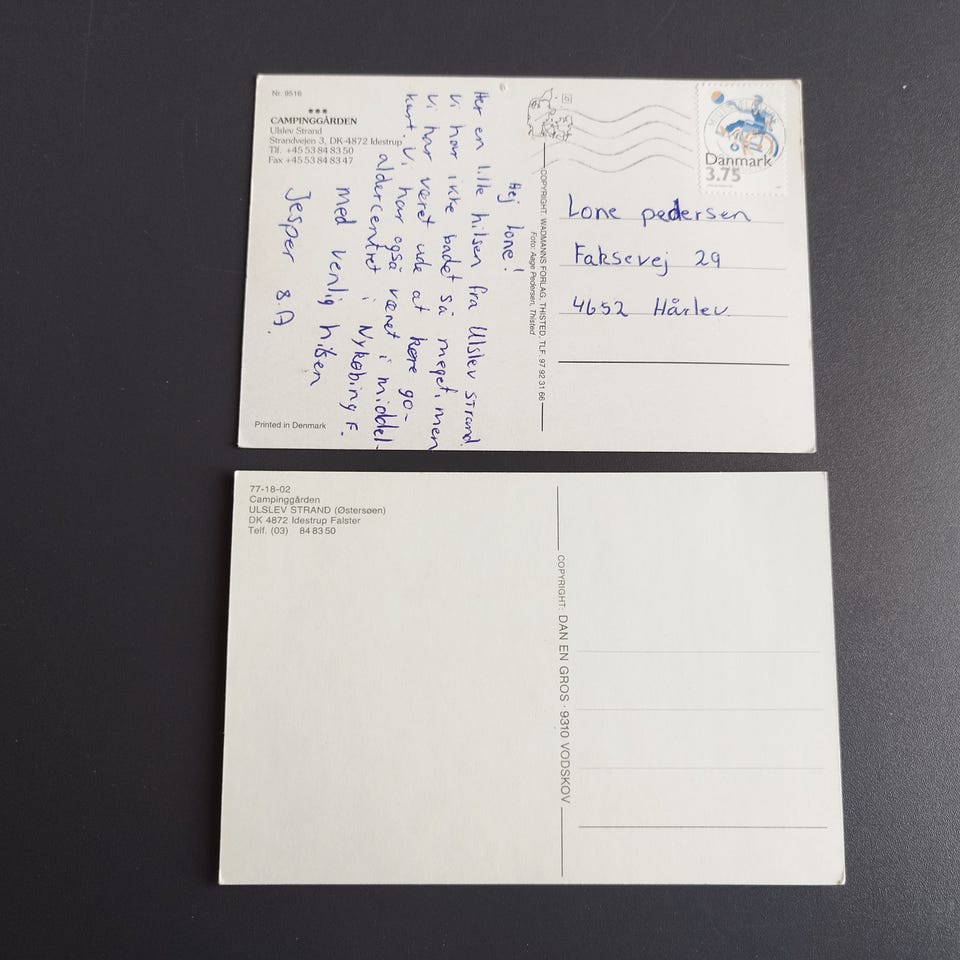 Nr. 9516
***
CAMPINGGÅRDEN
Ulslev Strand
Strandvejen 3, DK-4872 Idestrup
Tlf. +45 53 84 83 50
Fax +45 53 84 83 47
Hej lone!
Her en lille hilsen fra Ulslev strand.
Vi har ikke badet så meget, men
vi har været ude at køre go-
kart. Vi har også været i middel-
aldercentret i Nykøbing F.
med venlig hilsen
Jesper 8.A.
Printed in Denmark
COPYRIGHT: WADMANNS FORLAG, THISTED, TLF. 97 92 31 66
Foto: Aage Pedersen, Thisted
Danmark
3.75
Lone pedersen
Faksevej 29
4652 Hårlev
77-18-02
Campinggården
ULSLEV STRAND (Østersøen)
DK 4872 Idestrup Falster
Telf. (03) 84 83 50
COPYRIGHT: DAN EN GROS · 9310 VODSKOV